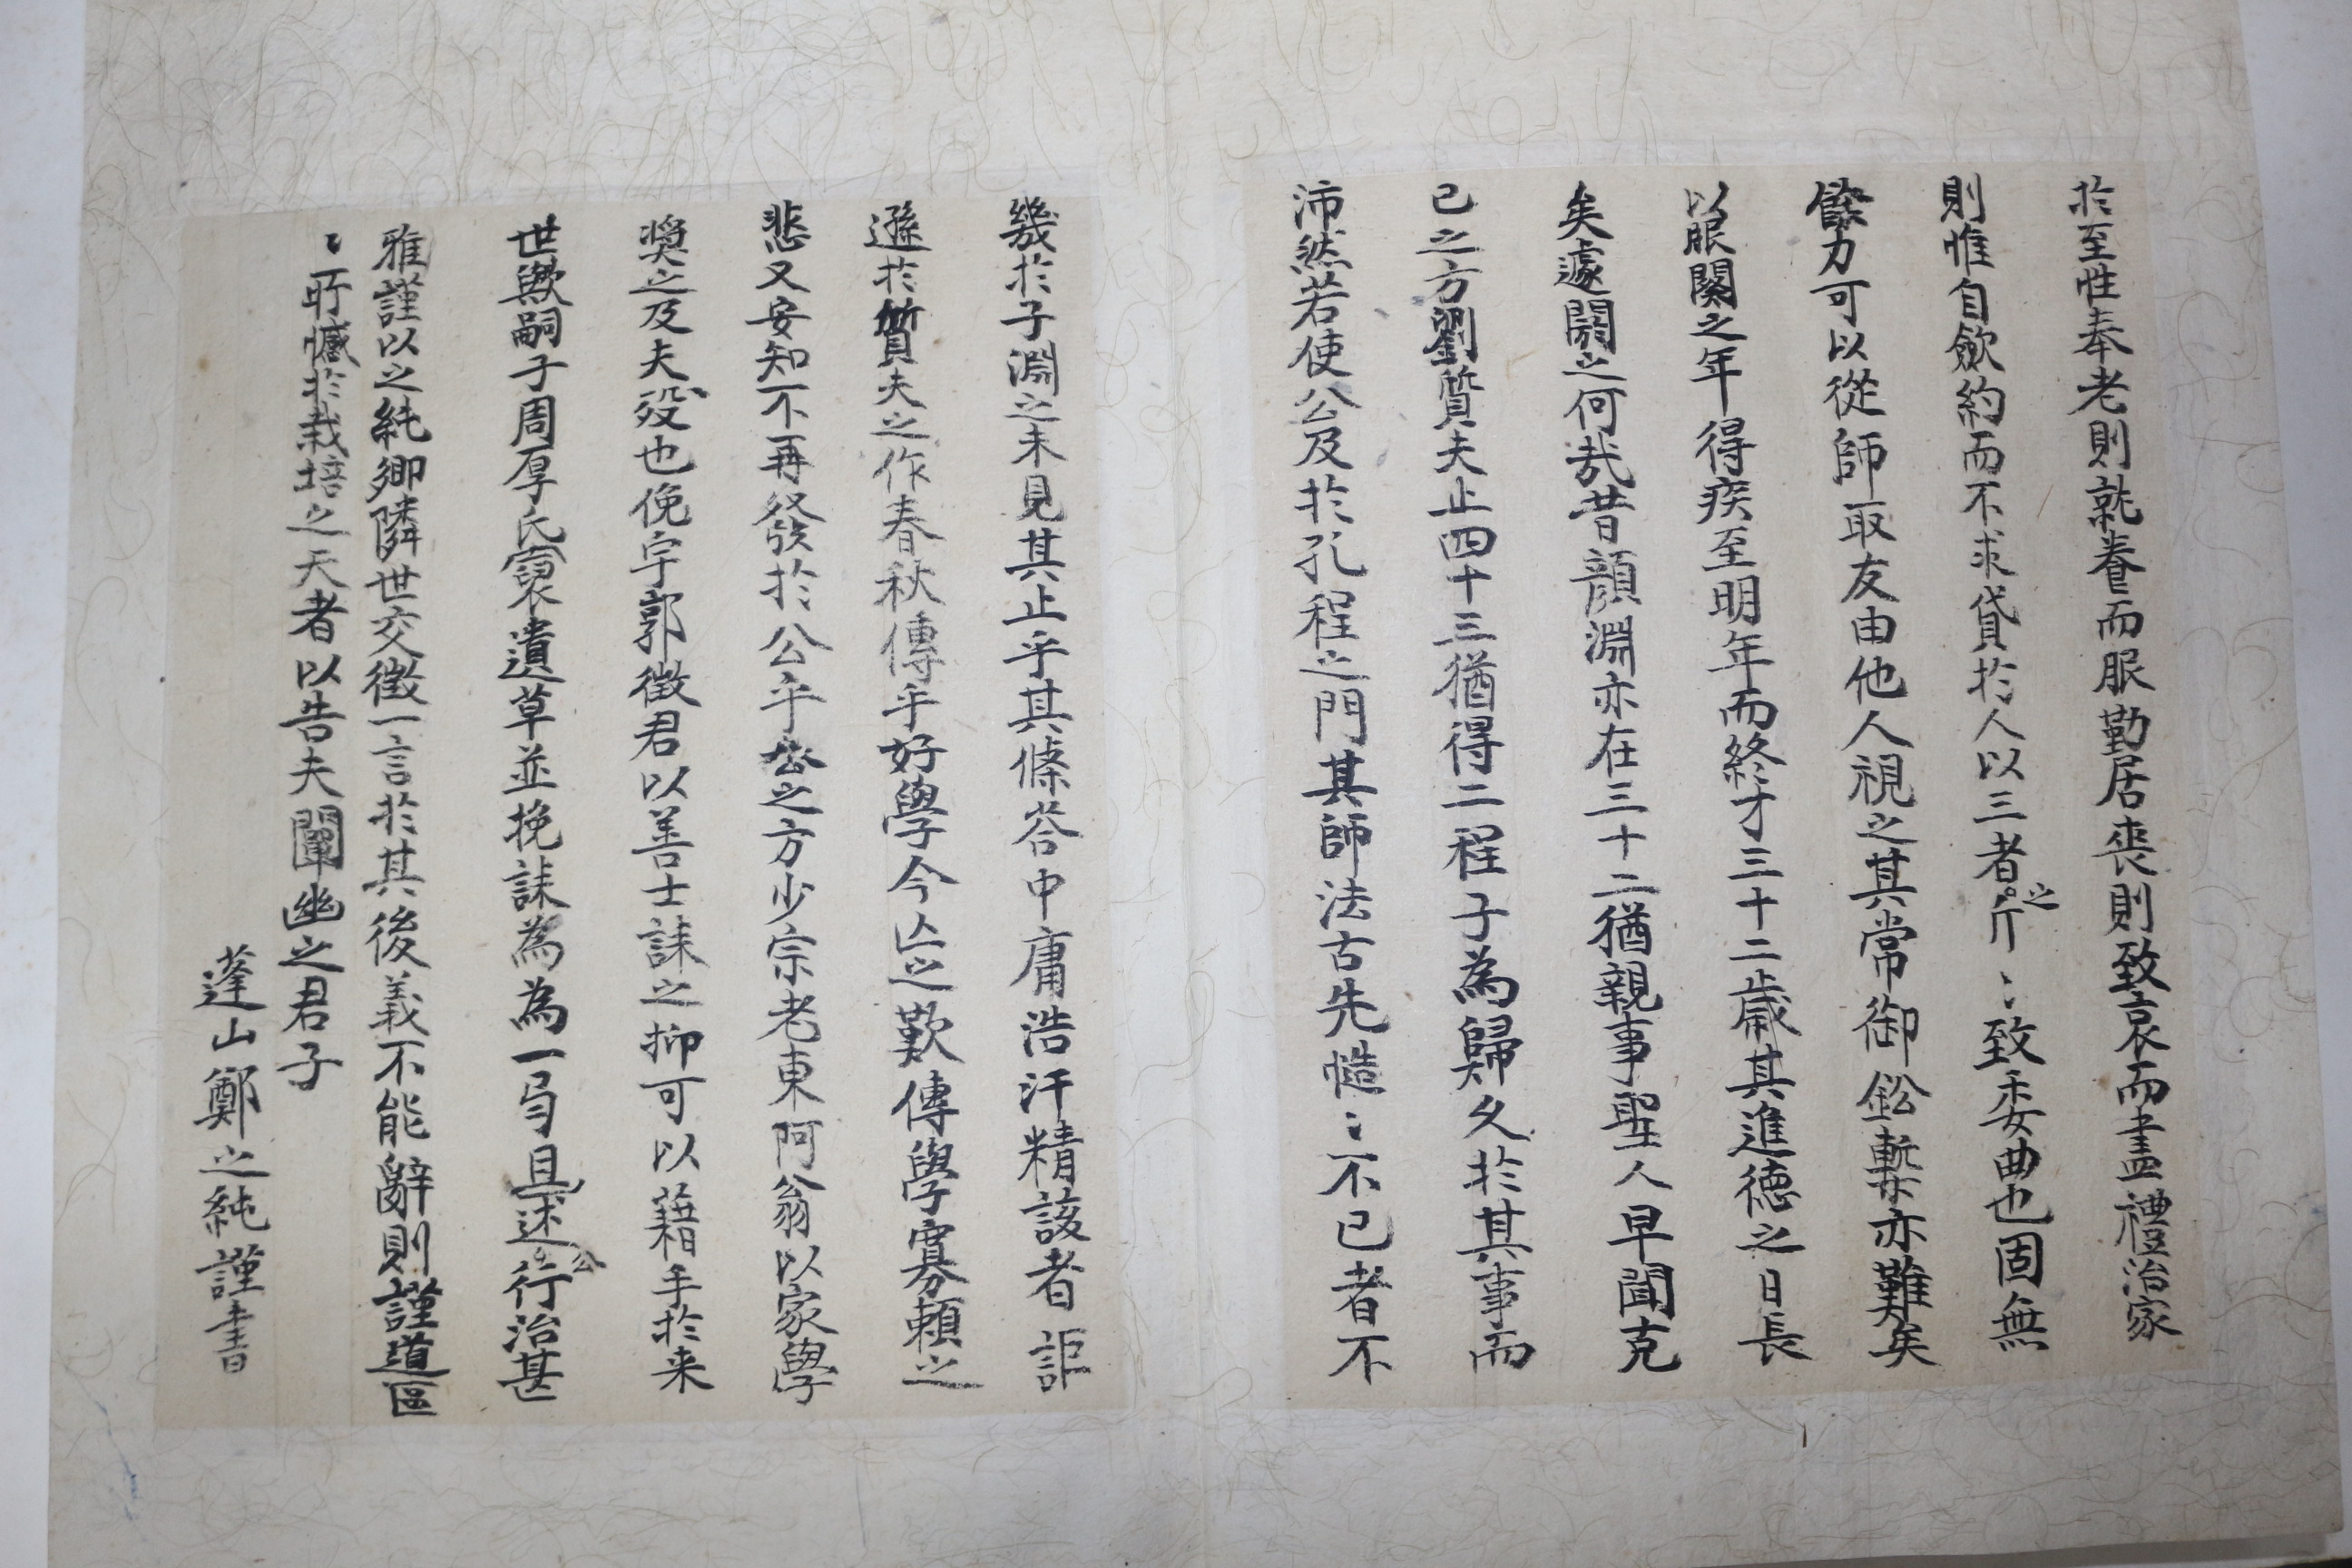 於至性奉老則就養而服勤居喪則致哀而盡禮治家
則惟自歛約而不求貸於人以三者之斤〻致委曲也固無
餘力可以從師取友由他人視之其常御鉛槧亦難矣
以服闋之年得疾至明年而終才三十二歲其進德之日長
矣遽閼之何哉昔顔淵亦在三十二猶親事聖人早聞克
己之方劉質夫止四十三猶得二程子為歸久於其事而
沛然若使公及於孔程之門其師法古先慥〻不已者不
幾於子淵之未見其止乎其條答中庸浩汗精該者詎
遜於質夫之作春秋傳乎好學今亾之歎傳學寡賴之
悲又安知不再發於公乎公之方少宗老東阿翁以家學
奬之及夫歿也俛宇郭徵君以善士誄之抑可以藉手於来
世歟嗣子周厚氏裒遺草並挽誄為為一弓且述公行治甚
雅謹以之純鄉隣世交徵一言於其後義不能辭則謹道區
〻所憾於栽培之天者以告夫闡幽之君子
蓬山鄭之純謹書